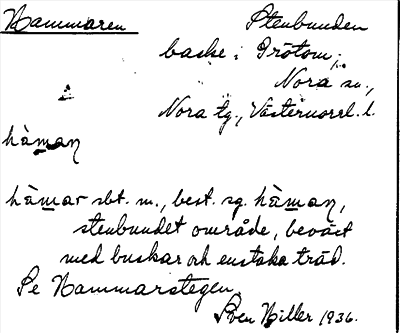 Hammaren
Stenbunden
backe i Grötom,
Nora sn.,
Nora tg., Västernorrl. l.
hàman
hàmar sbt. m., best. sg. hàman,
stenbundet område, beväxt
med buskar och enstaka träd.
Se Hammarstegen.
Sven Hiller 1936.